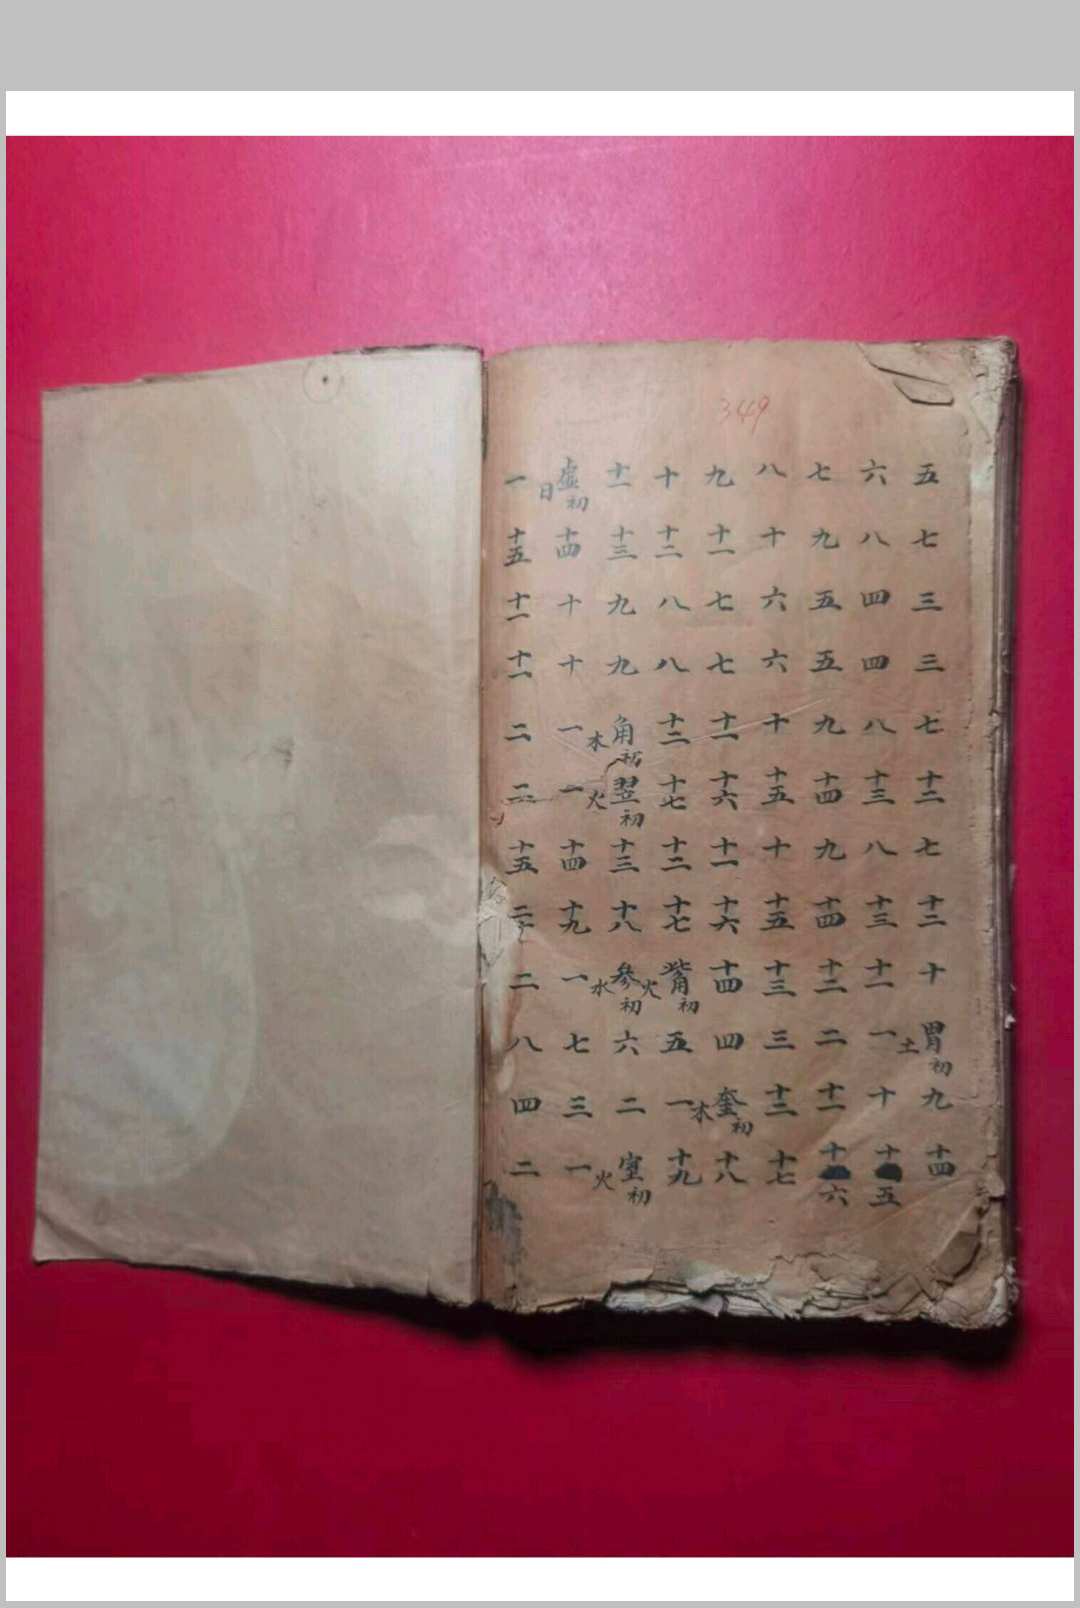 349
五 七 三 三 七 十二 七 十二 十 胃初土 九 十四
六 八 四 四 八 十三 八 十三 十一 一 十 十五
七 九 五 五 九 十四 九 十四 十二 二 十一 十六
八 十 六 六 十 十五 十 十五 十三 三 十二 十七
九 十一 七 七 十一 十六 十一 十六 十四 四 奎初木 十八
十 十二 八 八 十二 十七 十二 十七 觜初火 五 一 十九
十一 十三 九 九 角初木 翌初火 十三 十八 參初水 六 二 室初火
虛初日 十四 十 十 一 一 十四 十九 一 七 三 一
一 十五 十一 十一 二 二 十五 二十 二 八 四 二